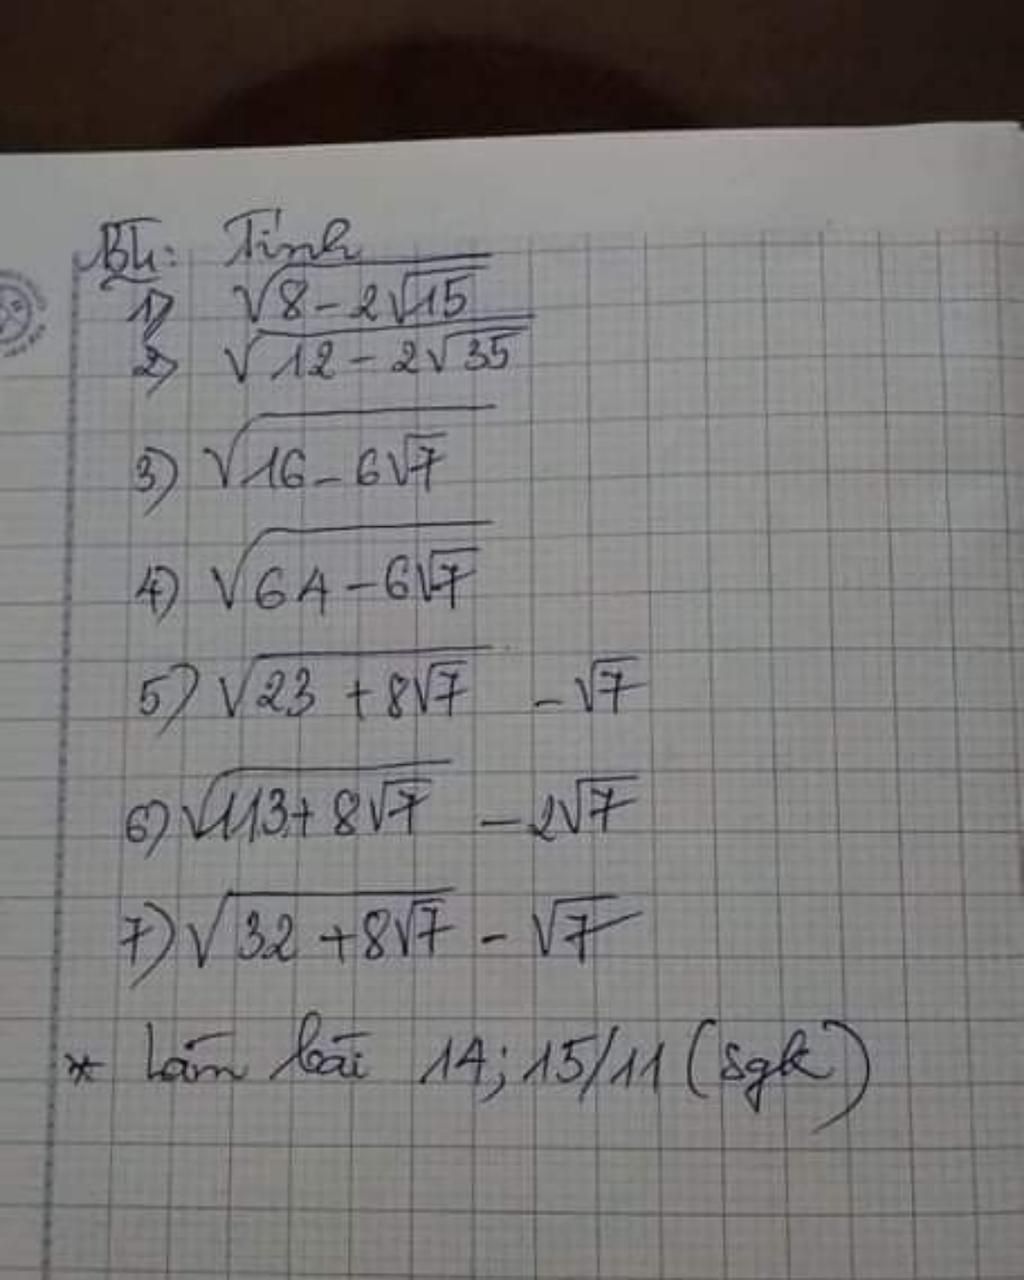 Bt: Tính
1) √8 - 2√15
2) √12 - 2√35
3) √16 - 6√7
4) √64 - 6√7
5) √23 + 8√7 - √7
6) √113 + 8√7 - 2√7
7) √32 + 8√7 - √7
* Làm bài 14; 15/11 (sgk)